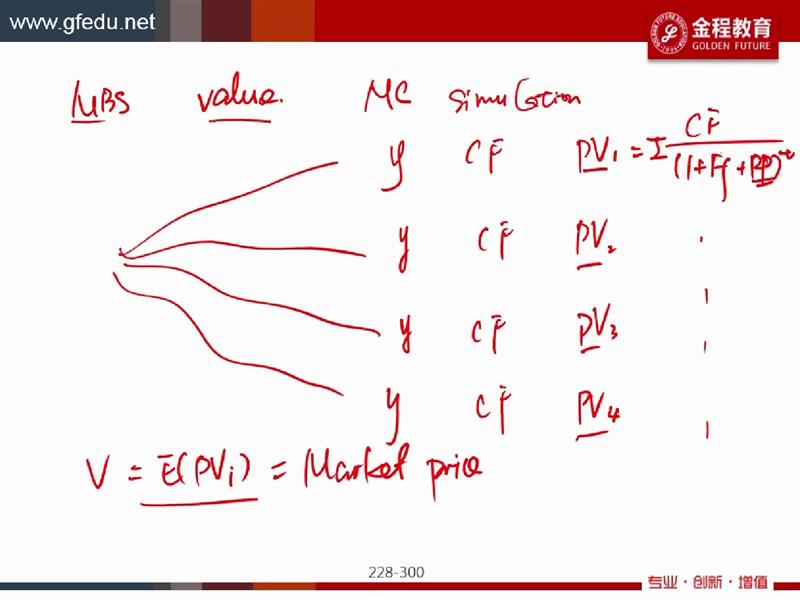 www.gfedu.net
金程教育
GOLDEN FUTURE
MBS value. MC simulation
y CF PV1 = Σ CF / (1+Ff+RP)^t
y CF PV2
y CF PV3
y CF PV4
V = E(PVi) = Market price
228-300
专业·创新·增值